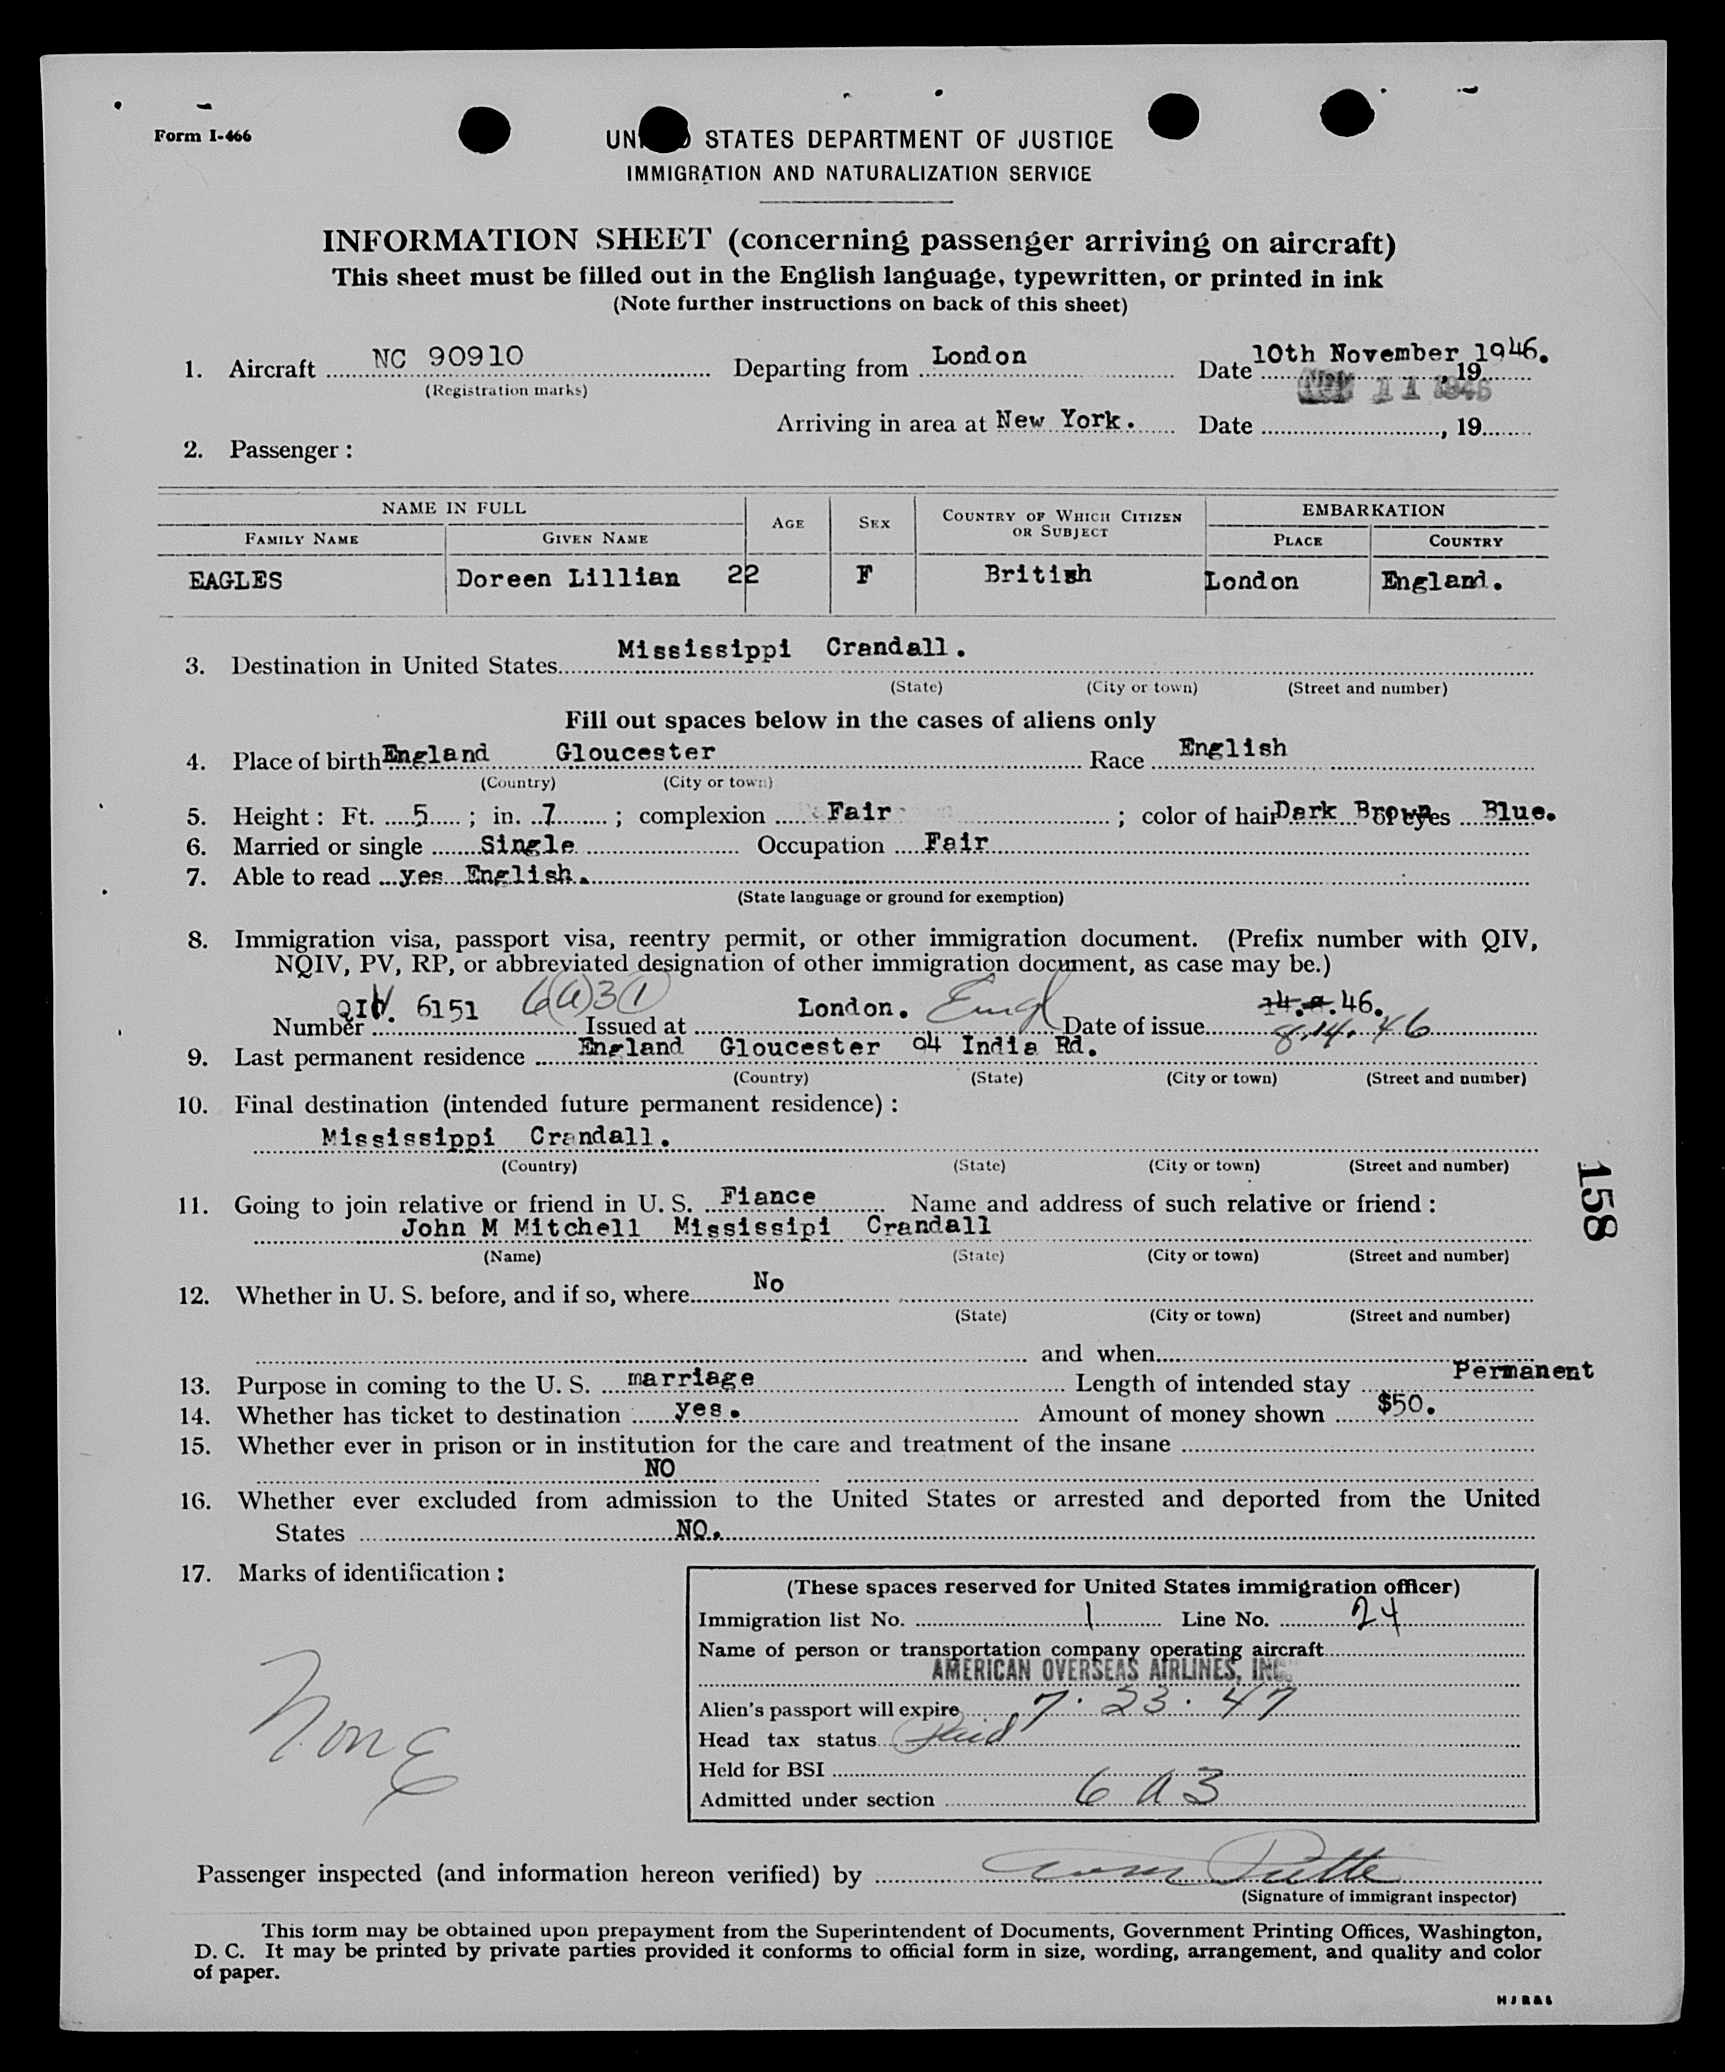 Form I-466
UNITED STATES DEPARTMENT OF JUSTICE
IMMIGRATION AND NATURALIZATION SERVICE
INFORMATION SHEET (concerning passenger arriving on aircraft)
This sheet must be filled out in the English language, typewritten, or printed in ink
(Note further instructions on back of this sheet)
1. Aircraft NC 90910 Departing from London Date 10th November 1946. , 19
(Registration marks) NOV 11 1946
Arriving in area at New York. Date , 19
2. Passenger :
NAME IN FULL AGE SEX COUNTRY OF WHICH CITIZEN OR SUBJECT EMBARKATION
FAMILY NAME GIVEN NAME PLACE COUNTRY
EAGLES Doreen Lillian 22 F British London England.
3. Destination in United States Mississippi Crandall.
(State) (City or town) (Street and number)
Fill out spaces below in the cases of aliens only
4. Place of birth England Gloucester Race English
(Country) (City or town)
5. Height : Ft. 5 ; in. 7 ; complexion Fair ; color of hair Dark Brown of eyes Blue.
6. Married or single Single Occupation Fair
7. Able to read yes English.
(State language or ground for exemption)
8. Immigration visa, passport visa, reentry permit, or other immigration document. (Prefix number with QIV,
NQIV, PV, RP, or abbreviated designation of other immigration document, as case may be.)
Number QIV. 6151 6(a)3(1) Issued at London. Engl Date of issue 14.8.46. 8.14.46
9. Last permanent residence England Gloucester 04 India Rd.
(Country) (State) (City or town) (Street and number)
10. Final destination (intended future permanent residence) :
Mississippi Crandall.
(Country) (State) (City or town) (Street and number)
11. Going to join relative or friend in U. S. Fiance Name and address of such relative or friend :
John M Mitchell Mississipi Crandall
(Name) (State) (City or town) (Street and number)
12. Whether in U. S. before, and if so, where No
(State) (City or town) (Street and number)
and when
13. Purpose in coming to the U. S. marriage Length of intended stay Permanent
14. Whether has ticket to destination yes. Amount of money shown $50.
15. Whether ever in prison or in institution for the care and treatment of the insane
NO
16. Whether ever excluded from admission to the United States or arrested and deported from the United
States NO.
17. Marks of identification :
None
(These spaces reserved for United States immigration officer)
Immigration list No. 1 Line No. 24
Name of person or transportation company operating aircraft
AMERICAN OVERSEAS AIRLINES, INC.
Alien's passport will expire 7.23.47
Head tax status Paid
Held for BSI
Admitted under section 6 A 3
Passenger inspected (and information hereon verified) by
(Signature of immigrant inspector)
This form may be obtained upon prepayment from the Superintendent of Documents, Government Printing Offices, Washington,
D. C. It may be printed by private parties provided it conforms to official form in size, wording, arrangement, and quality and color
of paper.
H J R & S
158